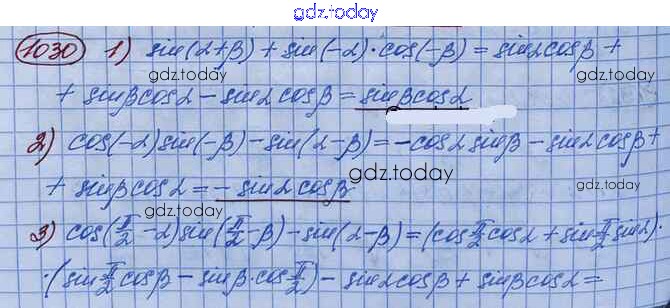 gdz.today
1030 1) sin(α+β) + sin(-α)·cos(-β) = sinαcosβ +
gdz.today gdz.today
+ sinβcosα - sinαcosβ = sinβcosα
2) cos(-α)sin(-β) - sin(α-β) = -cosαsinβ - sinαcosβ +
gdz.today
+ sinβcosα = - sinαcosβ
gdz.today gdz.today
3) cos(π/2 - α)sin(π/2 - β) - sin(α-β) = (cos π/2 cosα + sin π/2 sinα)·
·(sin π/2 cosβ - sinβ·cos π/2) - sinαcosβ + sinβcosα =